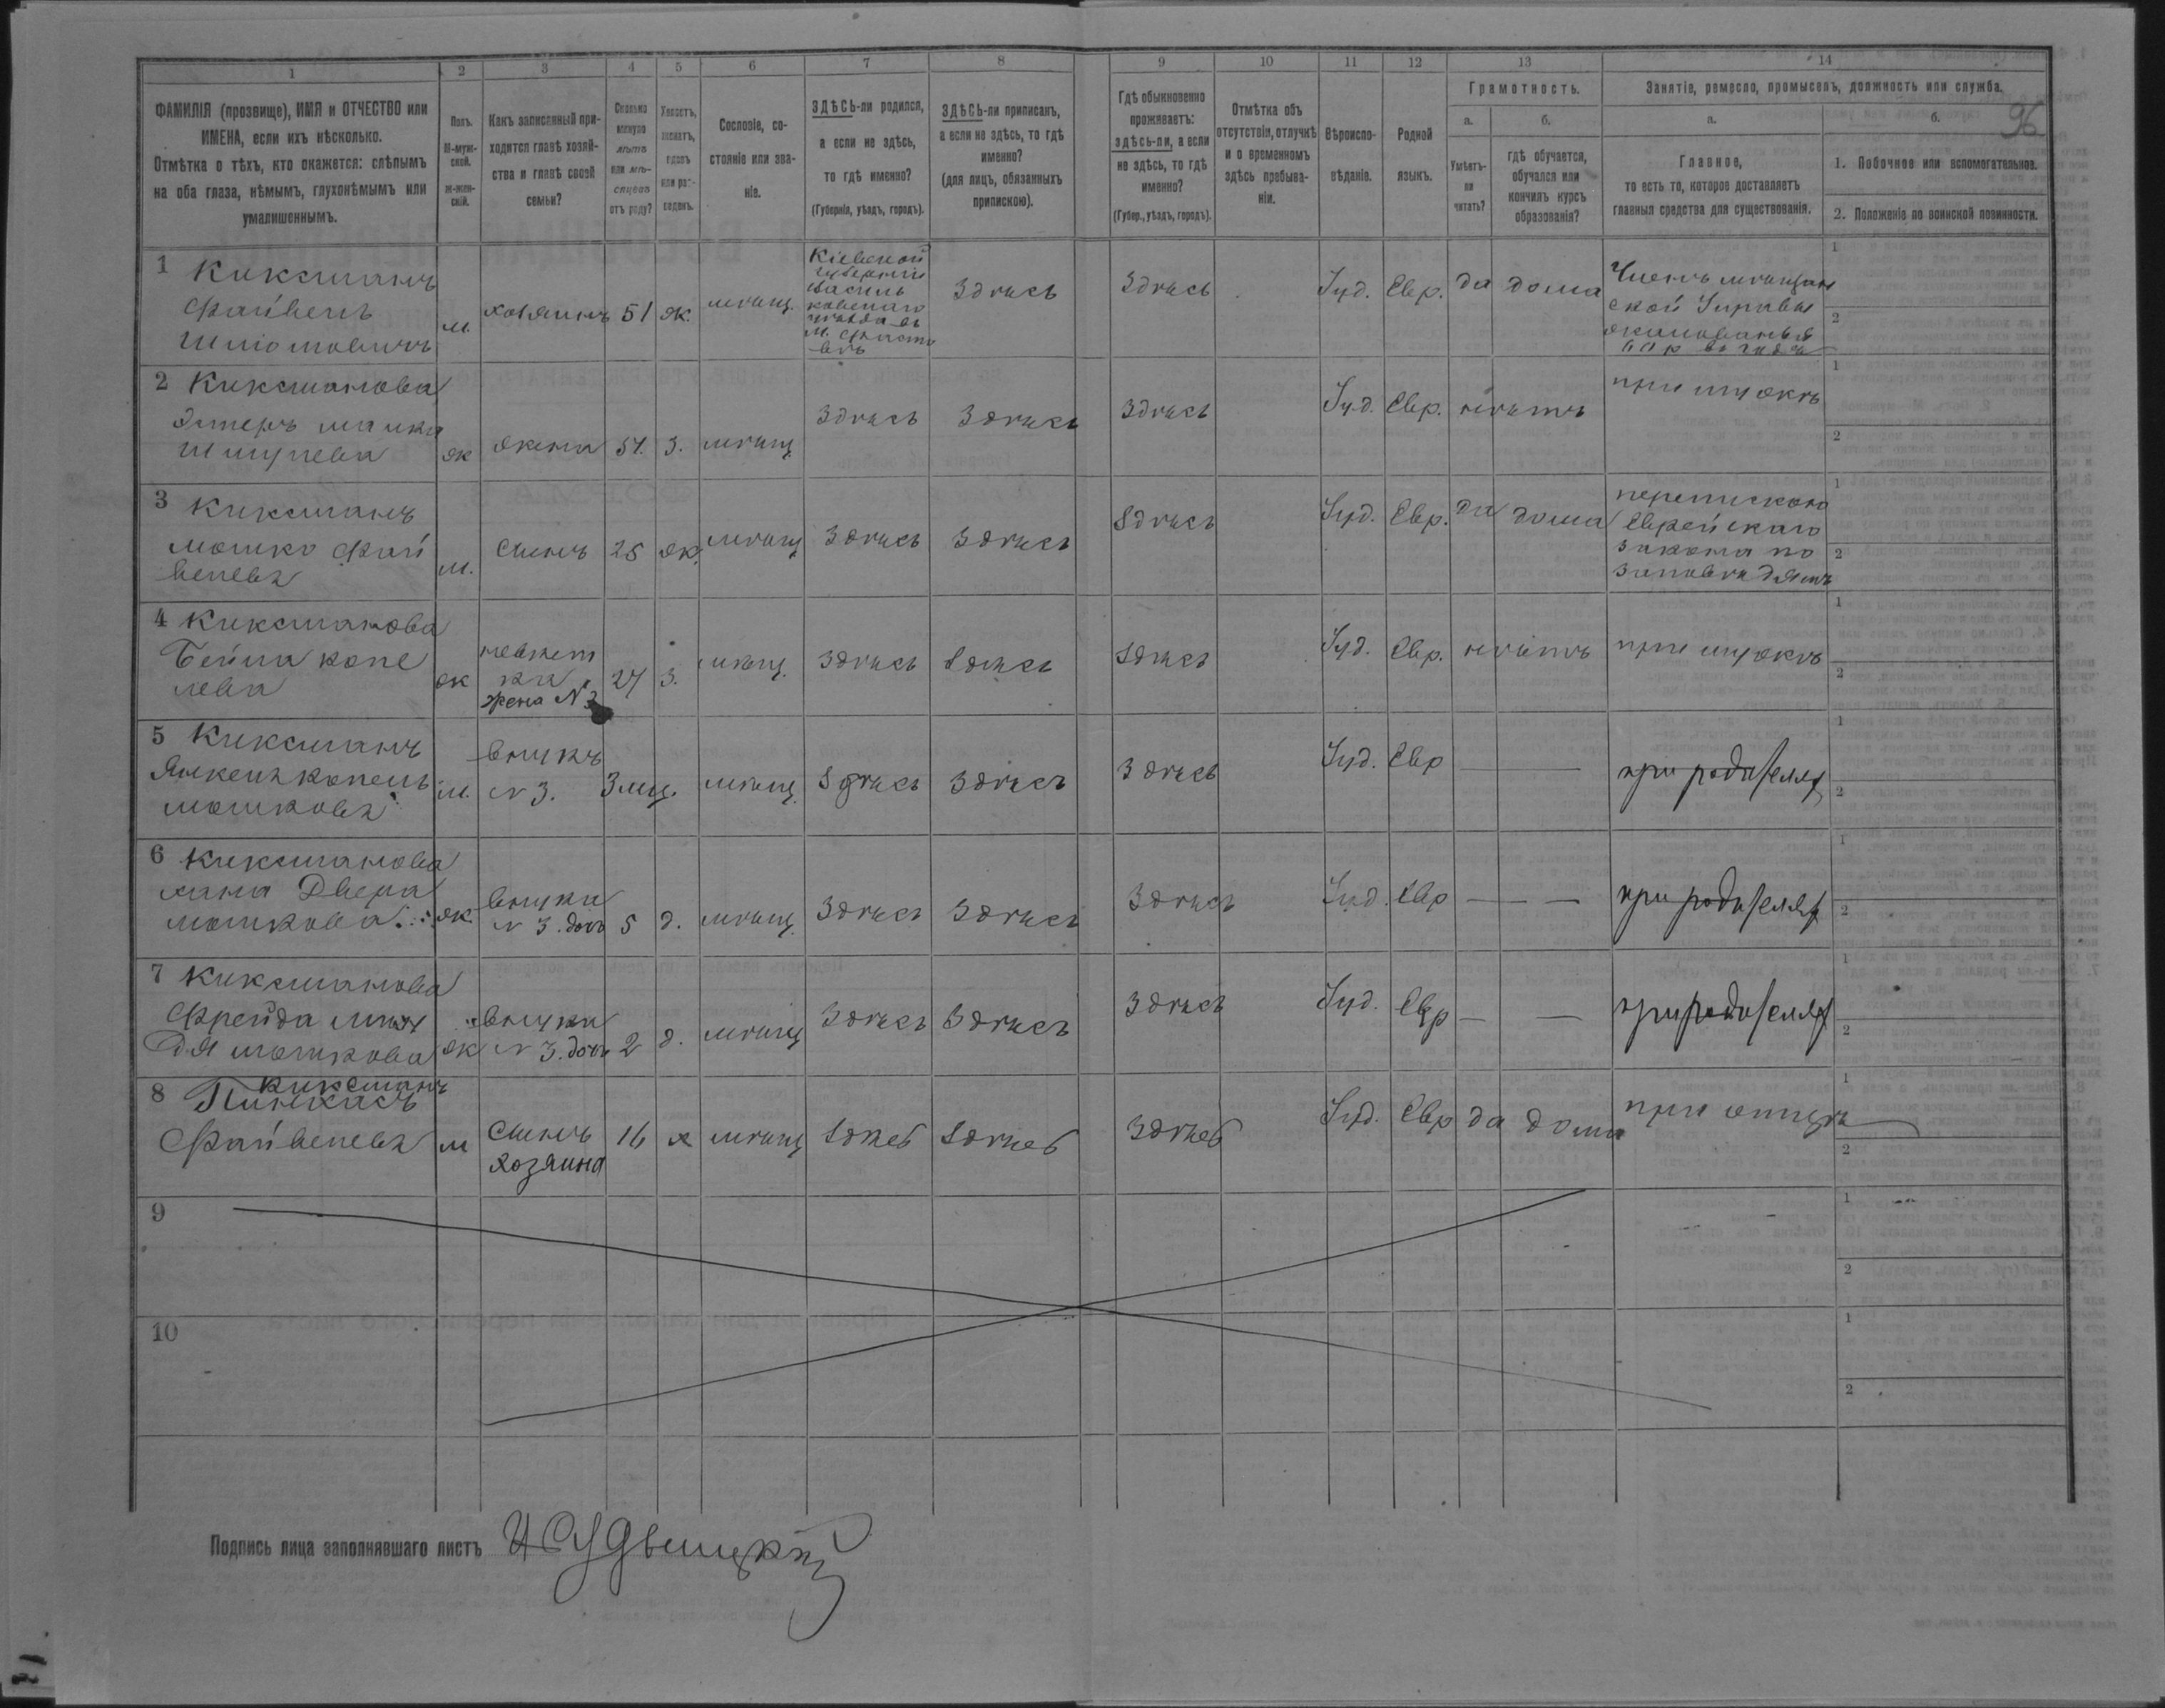 96
1 2 3 4 5 6 7 8 9 10 11 12 13 14
ФАМИЛІЯ (прозвище), ИМЯ и ОТЧЕСТВО или
ИМЕНА, если ихъ нѣсколько.
Отмѣтка о тѣхъ, кто окажется: слѣпымъ
на оба глаза, нѣмымъ, глухонѣмымъ или
умалишеннымъ.
Полъ.
М-муж-
ской.
Ж-жен-
скій.
Какъ записанный при-
ходится главѣ хозяй-
ства и главѣ своей
семьи?
Сколько
минуло
лѣтъ
или мѣ-
сяцевъ
отъ роду?
Холостъ,
женатъ,
вдовъ
или раз-
веденъ.
Сословіе, со-
стояніе или зва-
ніе.
ЗДѢСЬ-ли родился,
а если не здѣсь,
то гдѣ именно?
(Губернія, уѣздъ, городъ).
ЗДѢСЬ-ли приписанъ,
а если не здѣсь, то гдѣ
именно?
(для лицъ, обязанныхъ
припискою).
Гдѣ обыкновенно
проживаетъ:
здѣсь-ли, а если
не здѣсь, то гдѣ
именно?
(Губер., уѣздъ, городъ).
Отмѣтка объ
отсутствіи, отлучкѣ
и о временномъ
здѣсь пребыва-
ніи.
Вѣроиспо-
вѣданіе.
Родной
языкъ.
Грамотность.
а.
Умѣетъ-
ли
читать?
б.
гдѣ обучается,
обучался или
кончилъ курсъ
образованія?
Занятіе, ремесло, промыселъ, должность или служба.
а.
Главное,
то есть то, которое доставляетъ
главныя средства для существованія.
б.
1. Побочное или вспомогательное.
2. Положеніе по воинской повинности.
1 Киксманъ
Файвель
Шліомовичъ
м
хозяинъ
51
ж.
мѣщ.
Кіевской
губерніи
Василь
ковскаго
уѣзда въ
м.
Здѣсь
Здѣсь
Іуд.
Евр.
да
дома
Членъ мѣщан
ской Управы
жалованья
1
2
2 Киксманова
Эстеръ малка
Шмулева
ж
жена
51.
З.
мѣщ.
Здѣсь
Здѣсь
Здѣсь
Іуд.
Евр.
нѣтъ
при мужѣ
1
2
3 Киксманъ
мошко Фай
велевъ
м.
Сынъ
25
ж.
мѣщ
Здѣсь
Здѣсь
Здѣсь
Іуд.
Евр.
да
дома
перепискою
Еврейскаго
закона по
заповѣдямъ
1
2
4 Киксманова
Бейла копе
лева
ж
невест
ка
жена N 3
24
З.
мѣщ.
Здѣсь
Здѣсь
Здѣсь
Іуд.
Евр.
нѣтъ
при мужѣ
1
2
5 Киксманъ
Янкель копель
мошковъ
м.
внукъ
N 3.
3 мц.
мѣщ.
Здѣсь
Здѣсь
Здѣсь
Іуд.
Евр
при родителях
1
2
6 Киксманова
хана Двера
мошкова
ж.
внука
N 3. дочь
5
д.
мѣщ.
Здѣсь
Здѣсь
Здѣсь
Іуд.
Евр
при родителях
1
2
7 Киксманова
Фрейда
мошкова
ж
внука
N 3. дочь
2
д.
мѣщ
Здѣсь
Здѣсь
Здѣсь
Іуд.
Евр
при родителях
1
2
8 Киксманъ
Пинхасъ
Файвелевъ
м
Сынъ
Хозяина
16
х
мѣщ
Здѣсь
Здѣсь
Здѣсь
Іуд.
Евр
да
дома
при отцѣ
1
2
9
1
2
10
1
2
Подпись лица заполнявшаго листъ